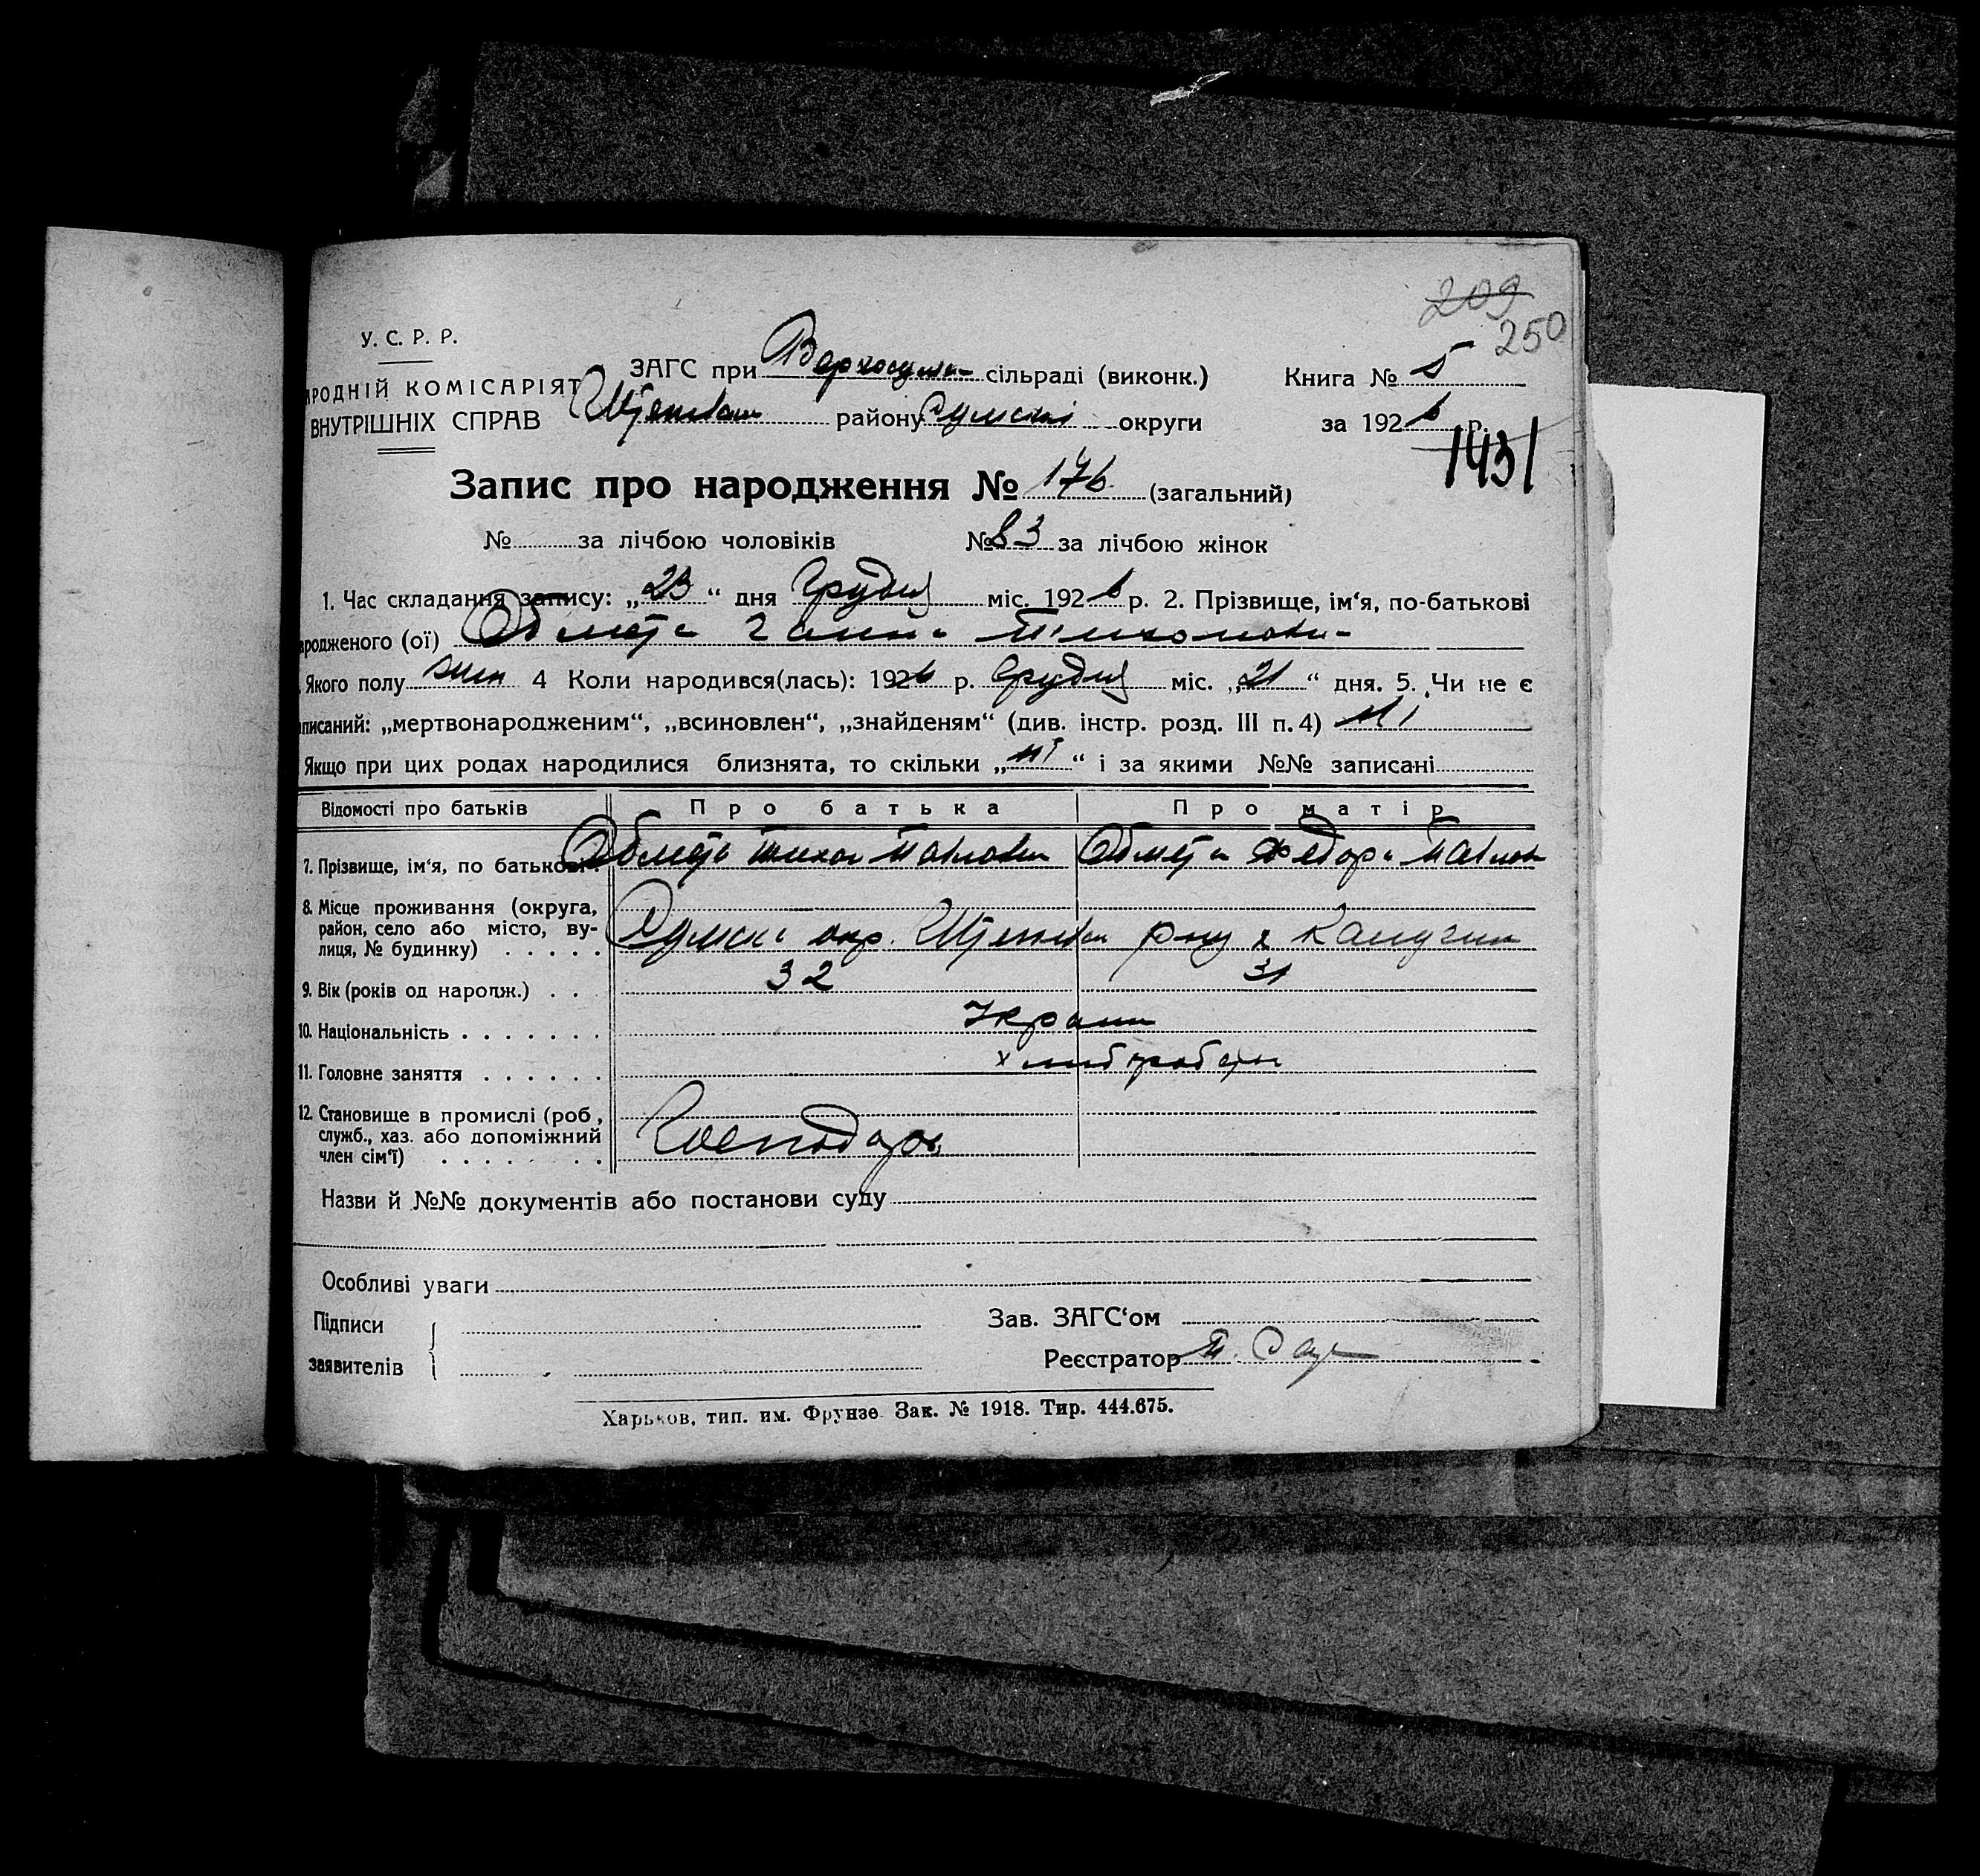 209
250
У. С. Р. Р.
РОДНІЙ КОМІСАРІЯТ
ВНУТРІШНІХ СПРАВ
ЗАГС при Верхосум сільраді (виконк.)
Книга № 5
району Сумські округи
за 1926 р.
1431
Запис про народження № 176 (загальний)
№ за лічбою чоловіків № 83 за лічбою жінок
1. Час складання запису: „23“ дня Грудня міс. 1926 р. 2. Прізвище, ім‘я, по-батькові
родженого (ої) Ганна
Якого полу жин 4 Коли народився(лась): 1926 р. Грудня міс. „21“ дня. 5. Чи не є
писаний: „мертвонародженим“, „всиновлен“, „знайденям“ (див. інстр. розд. III п. 4) ні
Якщо при цих родах народилися близнята, то скільки „ні“ і за якими №№ записані
Відомості про батьків Про батька Про матір
7. Прізвище, ім‘я, по батькові Тихон Павлович
8. Місце проживання (округа,
район, село або місто, ву-
лиця, № будинку) Сумск окр.
9. Вік (років од народж.) 32 31
10. Національність Украин
11. Головне заняття
12. Становище в промислі (роб,
служб., хаз. або допоміжний
член сім‘ї) Господарь
Назви й №№ документів або постанови суду
Особливі уваги
Підписи
заявителів
Зав. ЗАГС‘ом
Реєстратор
Харьков, тип. им. Фрунзе. Зак. № 1918. Тир. 444.675.